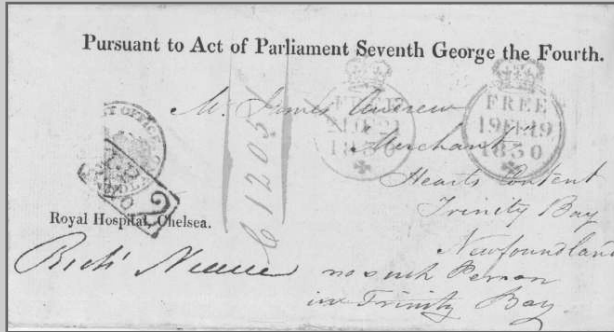 Pursuant to Act of Parliament Seventh George the Fourth.
Mr. James Andrew
Merchant
Hearts Content
Trinity Bay
Newfoundland
FREE
1830
FREE
19FE19
1830
Royal Hospital, Chelsea.
no such Person
in Trinity Bay